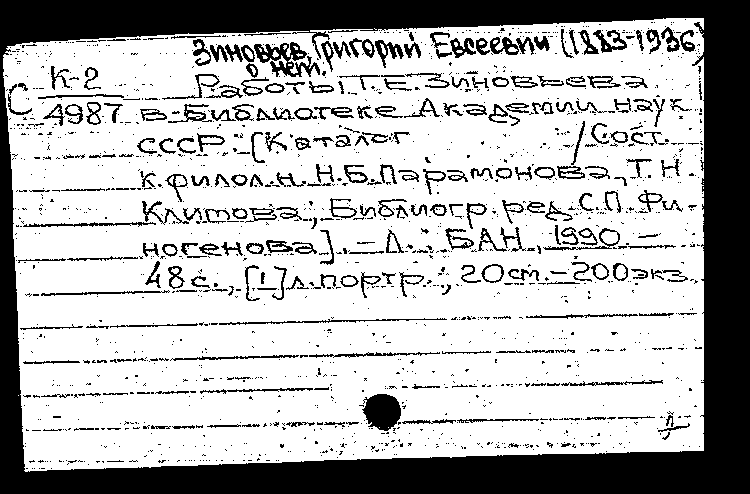 Зиновьев, Григорий Евсеевич (1883-1936)
о нем.
К-2 Работы Г.Е. Зиновьева
С 4987 в Библиотеке Академии наук
СССР: [Каталог / Сост.
к.филол.н. Н.Б. Парамонова, Т.Н.
Климова; Библиогр. ред. С.П. Фи-
ногенова]. – Л.: БАН, 1990. –
48 с., [1] л. портр.; 20 см. – 200 экз.